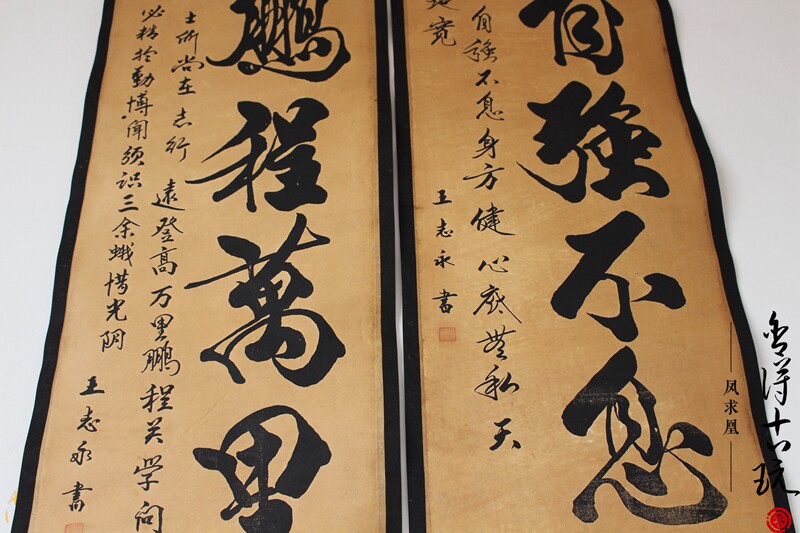 自強不息
自強不息身方健心底無私天
地宽
王志永書
鵬程萬里
士所尚在志行遠登高万里鵬程关学问
必精於勤博聞须识三余惜光阴
王志永書
凤求凰